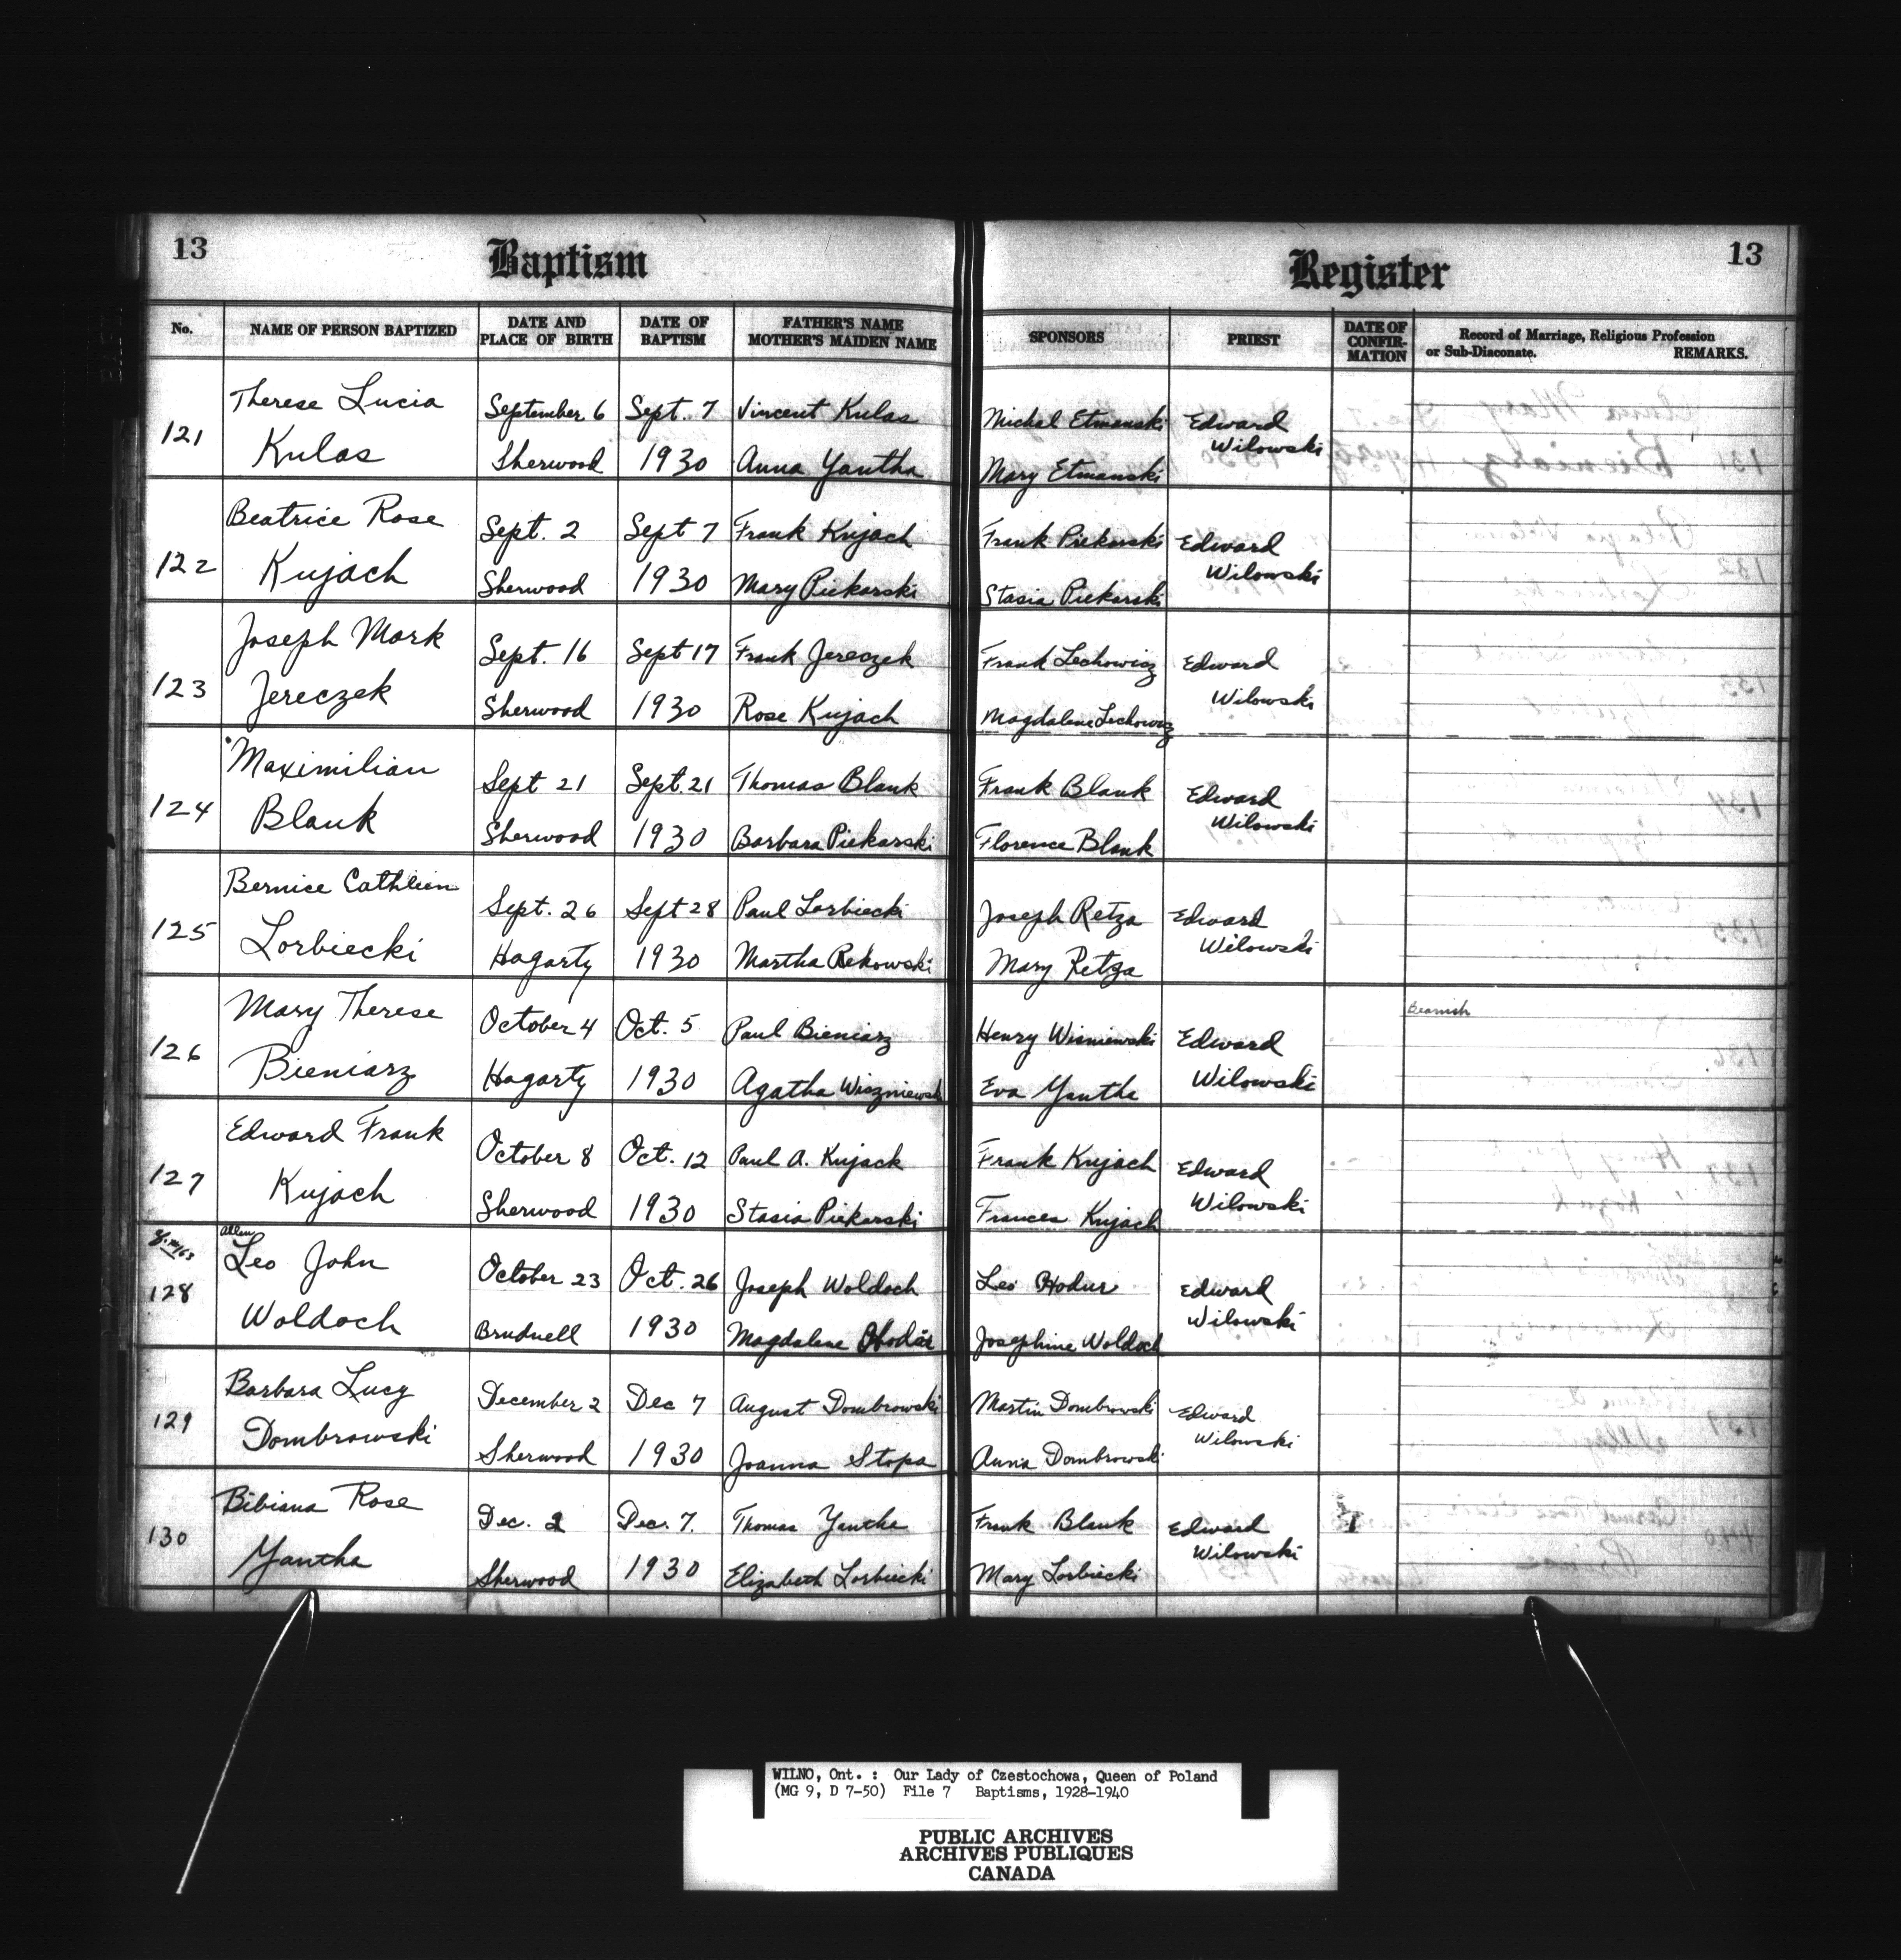 13 Baptism Register 13
No. NAME OF PERSON BAPTIZED DATE AND PLACE OF BIRTH DATE OF BAPTISM FATHER'S NAME MOTHER'S MAIDEN NAME SPONSORS PRIEST DATE OF CONFIRMATION Record of Marriage, Religious Profession or Sub-Diaconate. REMARKS.
Therese Lucia September 6 Sept. 7 Vincent Kulas Michal Etmanski Edward
121 Kulas Sherwood 1930 Anna Yantha Mary Etmanski Wilowski
Beatrice Rose Sept. 2 Sept 7 Frank Kujach Frank Piekarski Edward
122 Kujach Sherwood 1930 Mary Piekarski Stasia Piekarski Wilowski
Joseph Mark Sept. 16 Sept 17 Frank Jereczek Frank Lechowicz Edward
123 Jereczek Sherwood 1930 Rose Kujach Magdalene Lechowicz Wilowski
Maximilian Sept 21 Sept. 21 Thomas Blank Frank Blank Edward
124 Blank Sherwood 1930 Barbara Piekarski Florence Blank Wilowski
Bernice Cathleen Sept. 26 Sept 28 Paul Lorbiecki Joseph Retza Edward
125 Lorbiecki Hagarty 1930 Martha Rekowski Mary Retza Wilowski
Beanish
Mary Therese October 4 Oct. 5 Paul Bieniarz Henry Wisniewski Edward
126 Bieniarz Hagarty 1930 Agatha Wiszniewski Eva Yantha Wilowski
Edward Frank October 8 Oct. 12 Paul A. Kujack Frank Kujach Edward
127 Kujach Sherwood 1930 Stasia Piekarski Frances Kujach Wilowski
Allen
Leo John October 23 Oct. 26 Joseph Woldoch Leo Hodur Edward
128 Woldoch Brudnell 1930 Magdalene Josephine Woldoch Wilowski
Barbara Lucy December 2 Dec 7 August Dombrowski Martin Dombrowski Edward
129 Dombrowski Sherwood 1930 Joanna Stopa Anna Dombrowski Wilowski
Bibiana Rose Dec. 2 Dec. 7. Thomas Yantha Frank Blank Edward
130 Yantha Sherwood 1930 Elizabeth Lorbiecki Mary Lorbiecki Wilowski
WILNO, Ont. : Our Lady of Czestochowa, Queen of Poland
(MG 9, D 7-50) File 7 Baptisms, 1928-1940
PUBLIC ARCHIVES
ARCHIVES PUBLIQUES
CANADA